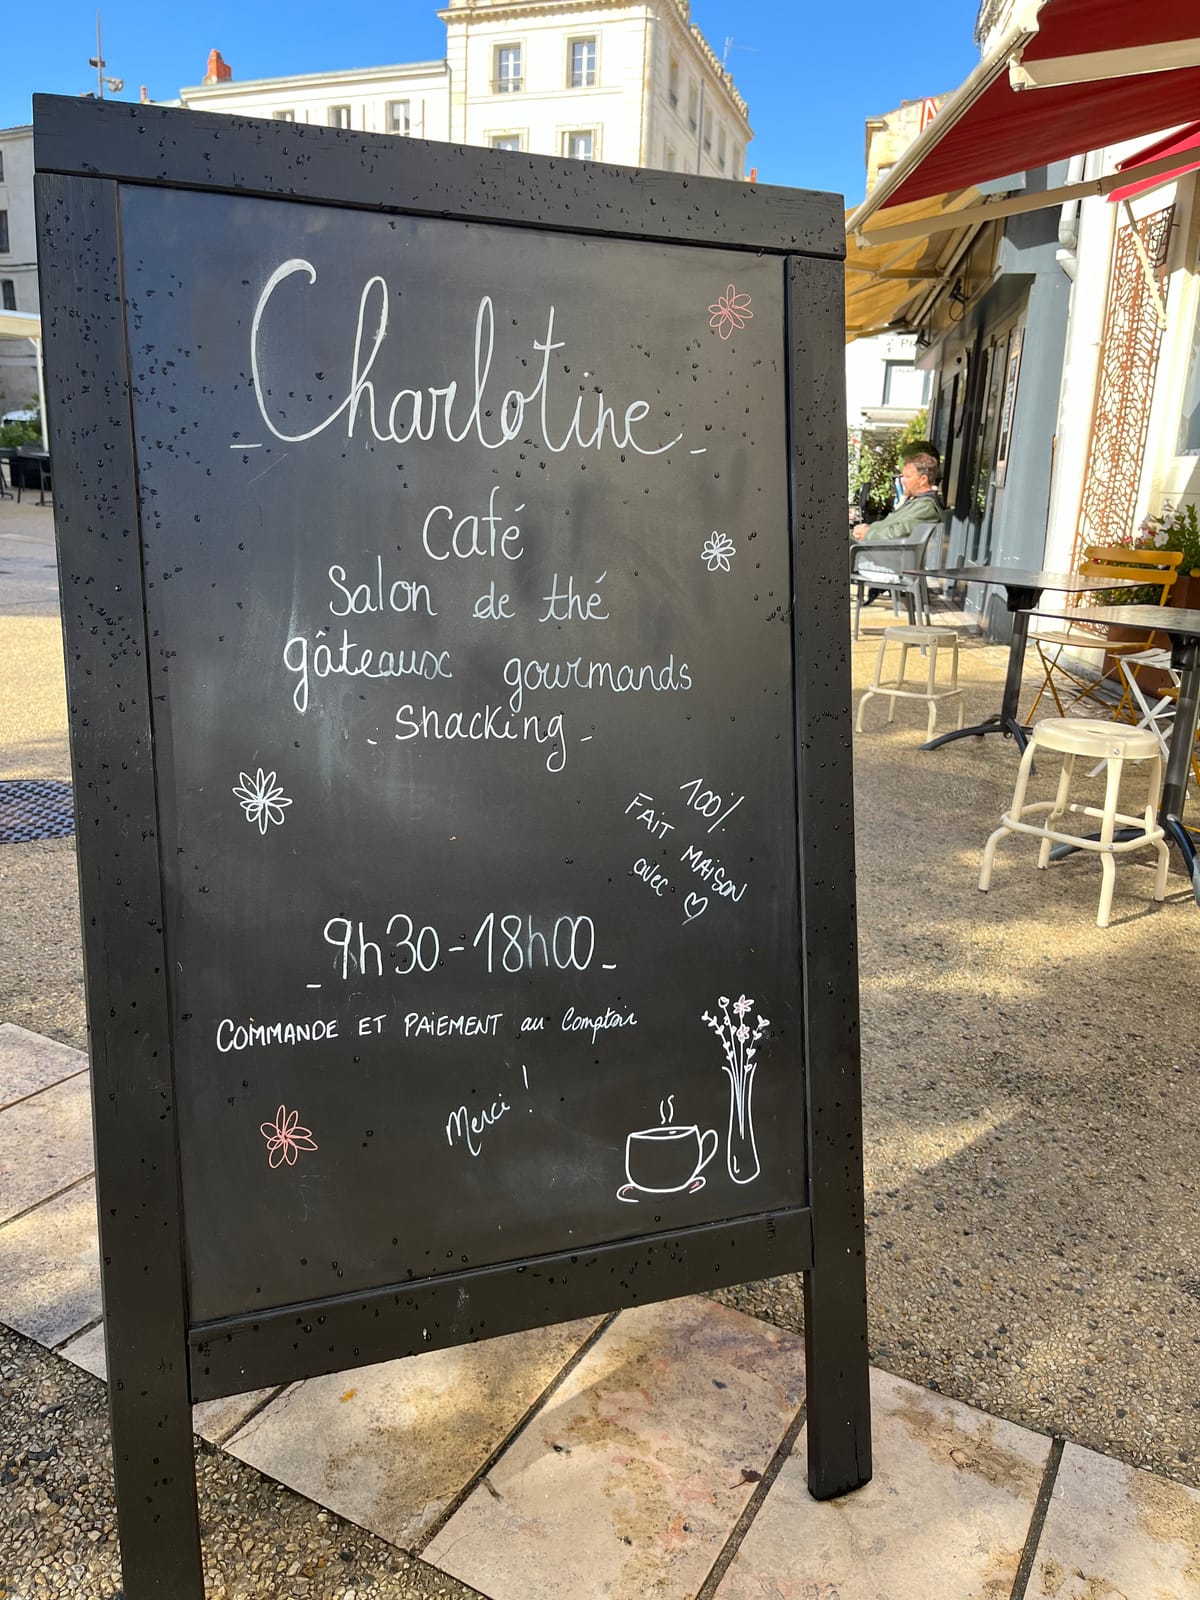 Charlotine
Café
Salon de thé
gâteaux gourmands
- snacking -
100%
FAIT MAISON
avec ♡
- 9h30-18h00 -
COMMANDE ET PAIEMENT au Comptoir
Merci !